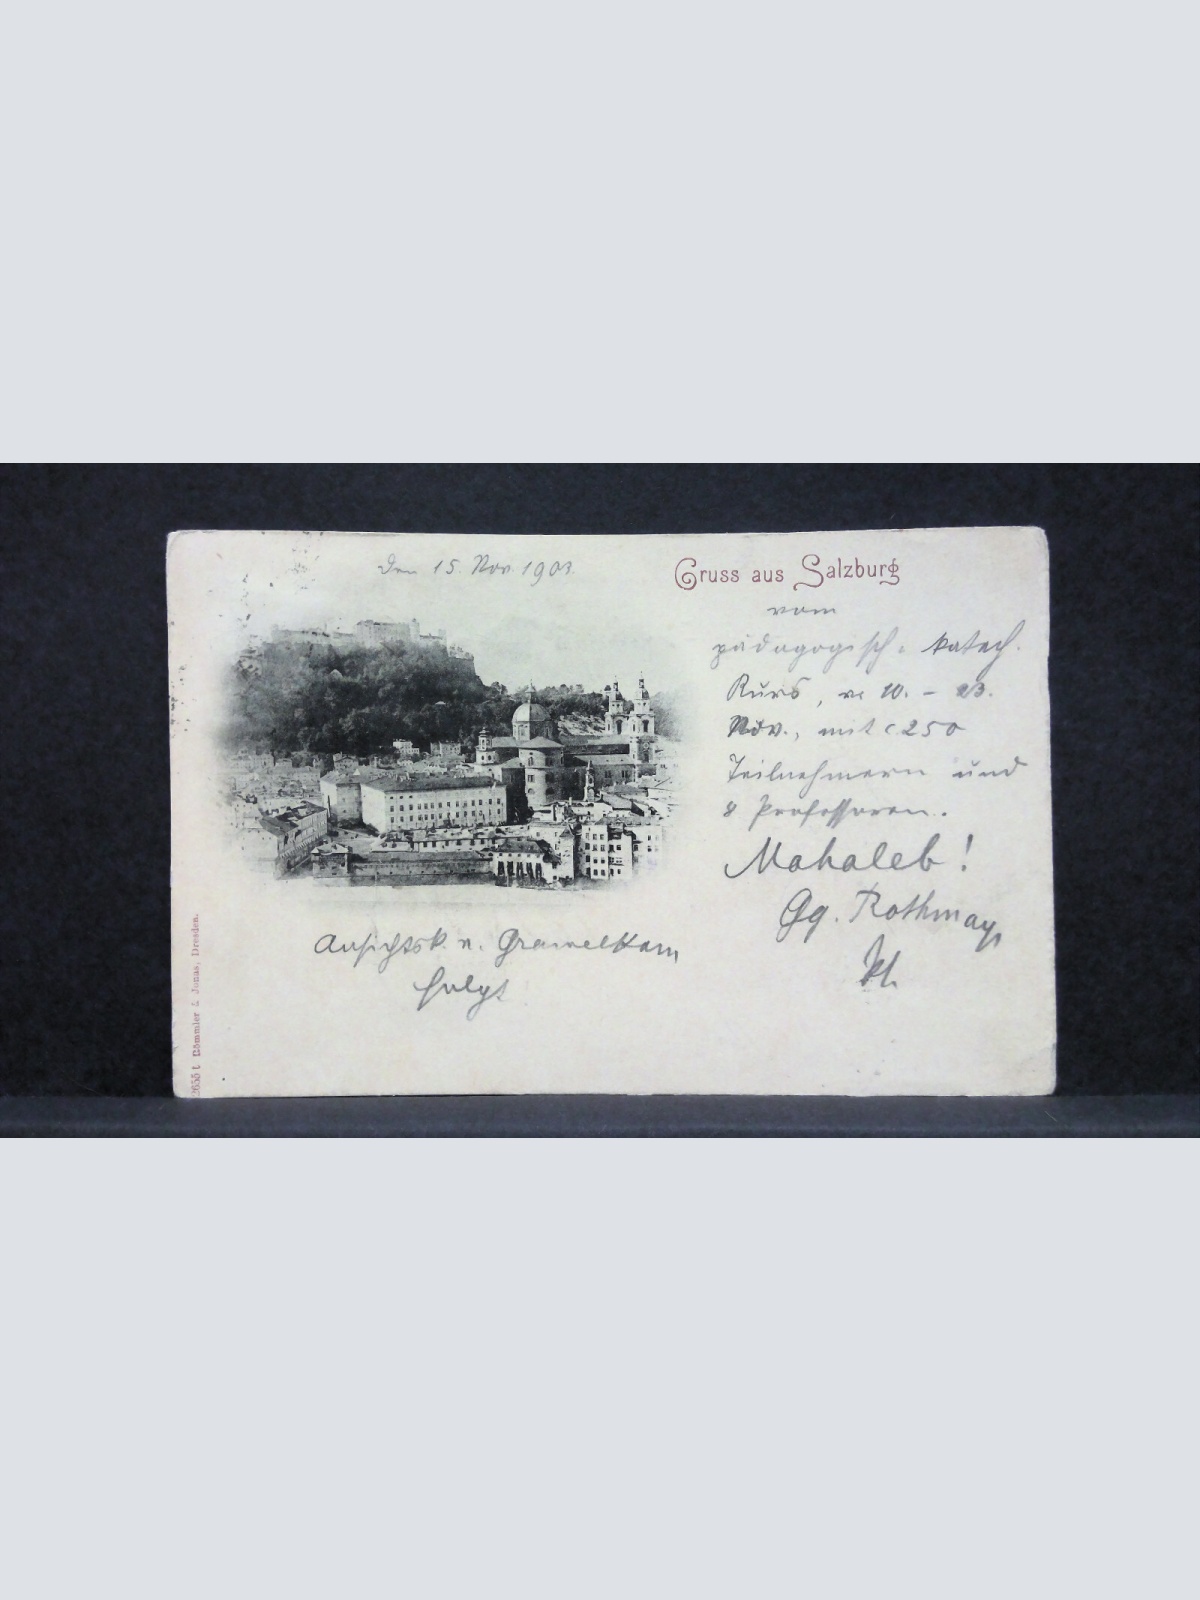 Den 15. Nov. 1903.
Gruss aus Salzburg
vom
pädagogisch-katech.
Kurs, v. 10. - 23.
Nov., mit c 250
Teilnehmern und
8 Professoren.
Mahaleb!
Gg. Rothmayr
Ansichtsk. v.
folgt
2655 t Römmler & Jonas, Dresden.